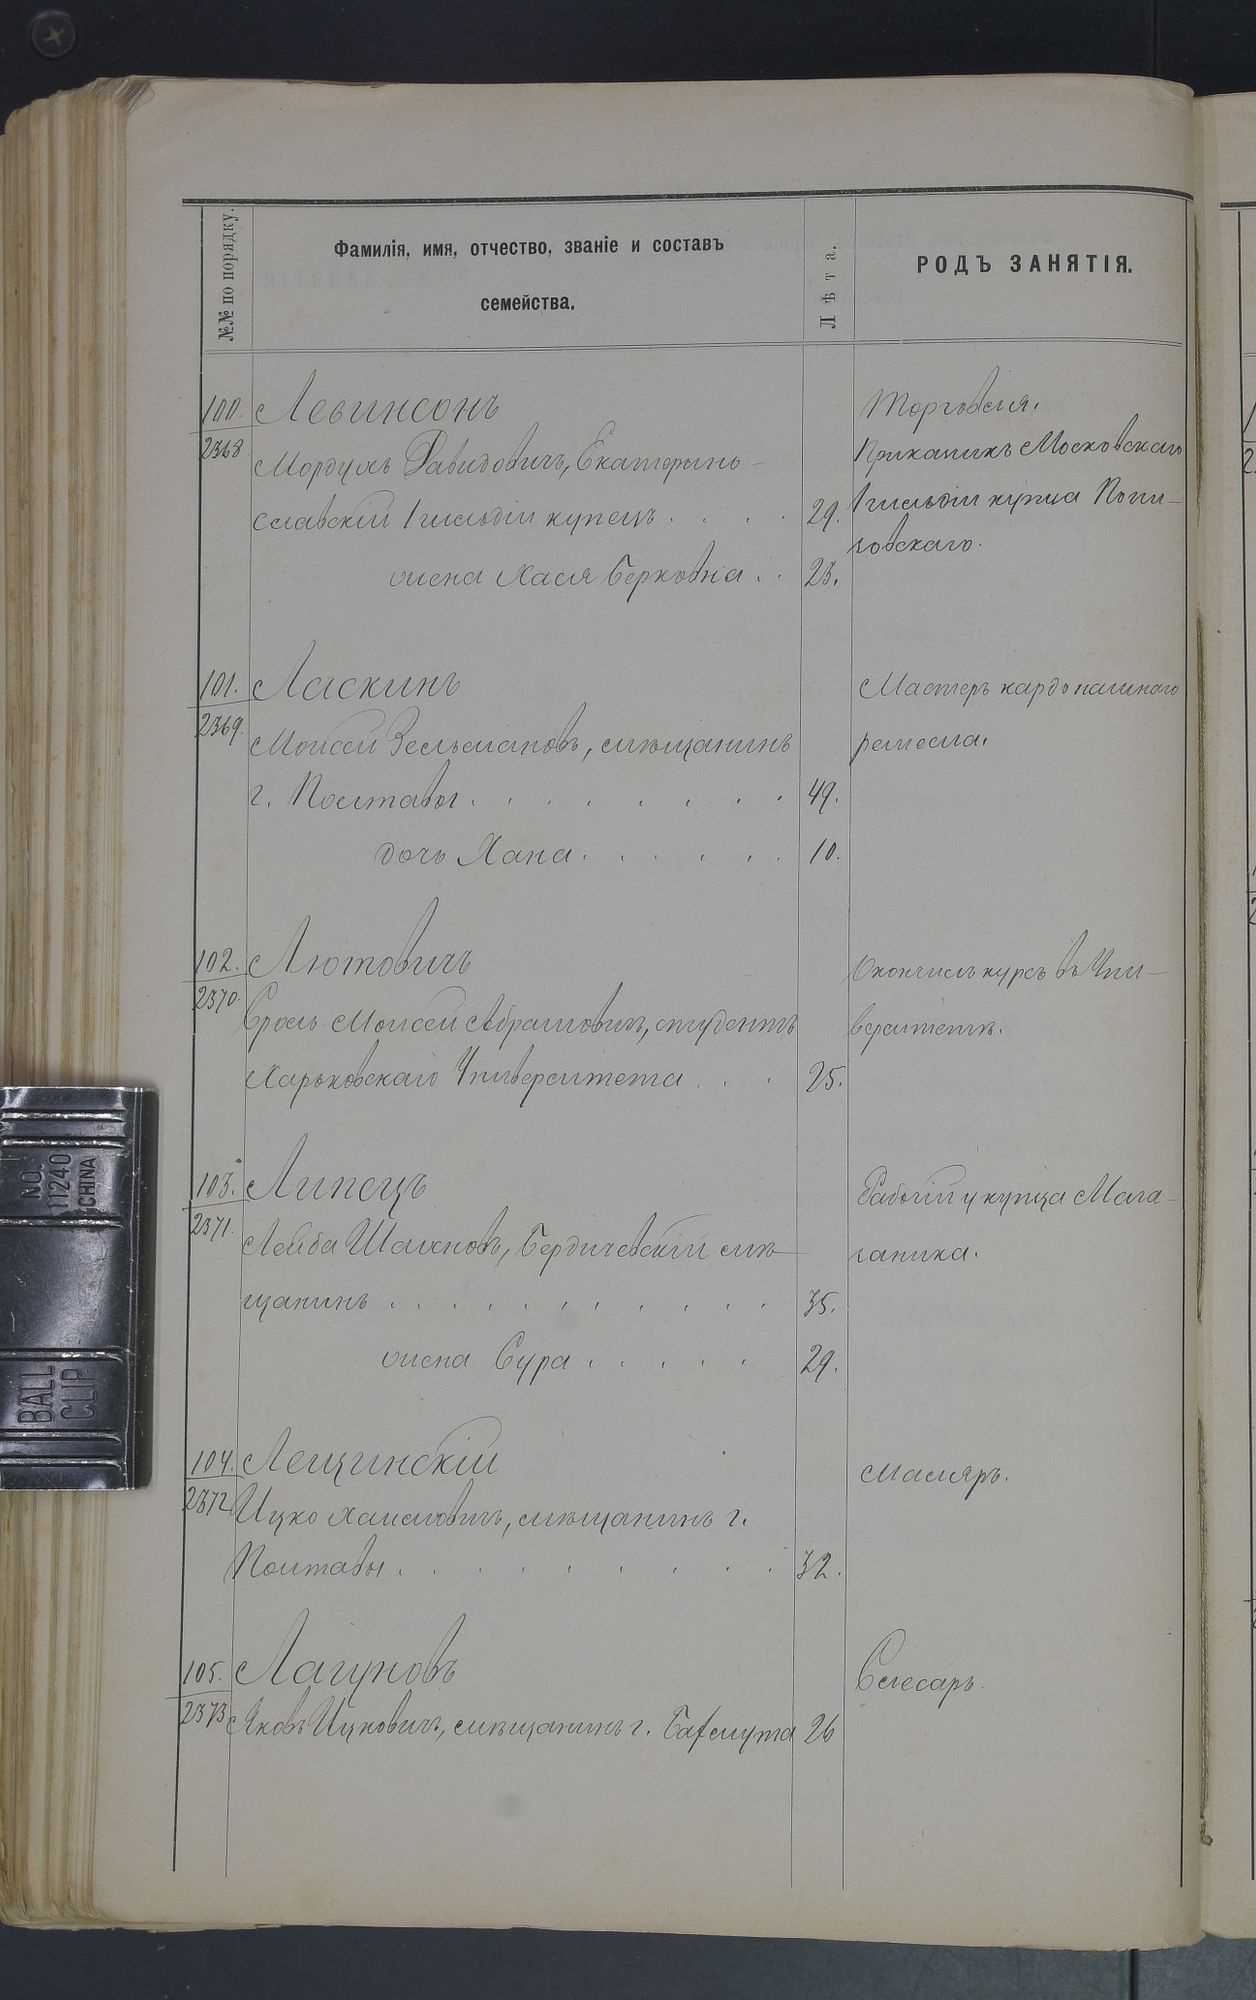 №№ по порядку.
Фамилія, имя, отчество, званіе и составъ
семейства.
Лѣта.
РОДЪ ЗАНЯТІЯ.
100. Левинсонъ
Торговля.
2368 Мордухъ Давидовичъ, Екатерино-
Прикащикъ Московскаго
славскій 1 гильдіи купецъ . . . . 29.
1 гильдіи купца
говскаго.
жена Хася Берковна . . 23.
101. Ласкинъ
Мастеръ кардонажнаго
2369. Моисей Зельмановъ, мѣщанинъ
ремесла.
г. Полтавы . . . . . . . . 49.
дочь Хана . . . . . . 10.
102. Лютовичъ
Окончилъ курсъ въ Уни-
2370. Сроль-Моисей Абрамовичъ, студентъ
верситетѣ.
Харьковскаго Университета . . . 25.
103. Липецъ
Рабочій у купца Мага-
2371. Лейба Шаинов, Бердичевскій мѣ-
заника.
щанинъ . . . . . . . . . . . . 35.
жена Сура . . . . . 29.
104. Лещинскій
Маляръ.
2372 Ицко Хаимовичъ, мѣщанинъ г.
Полтавы . . . . . . . . . . 32.
105. Лагуновъ
Слесарь.
2373 Яковъ Ицковичъ, мѣщанинъ г. Бахмута 26
NO.
11240
CHINA
BALL
CLIP